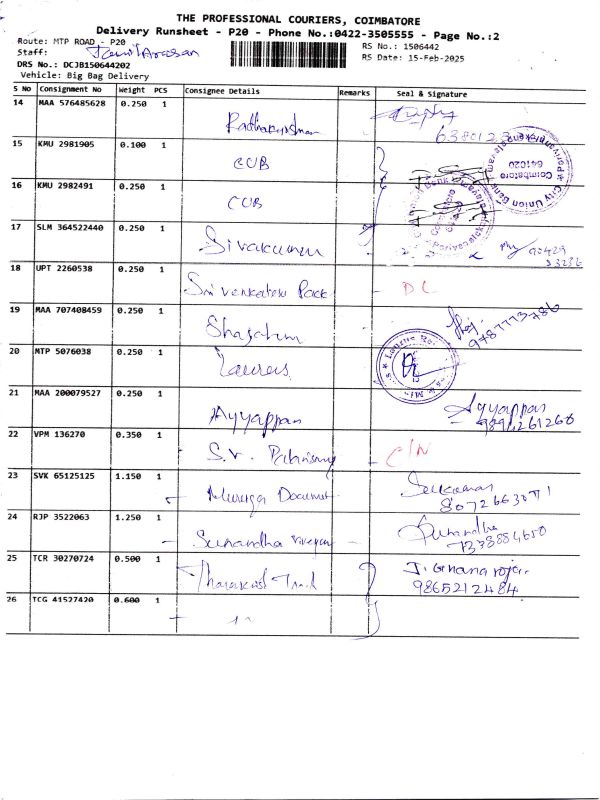 THE PROFESSIONAL COURIERS, COIMBATORE
Delivery Runsheet - P20 - Phone No.:0422-3505555 - Page No.:2
Route: MTP ROAD - P20
RS No.: 1506442
Staff: TamilArasan
RS Date: 15-Feb-2025
DRS No.: DCJB150644202
Vehicle: Big Bag Delivery
S No Consignment No Weight PCS Consignee Details Remarks Seal & Signature
14 MAA 576485628 0.250 1
Radhakrishnan
15 KMU 2981905 0.100 1
CUB
16 KMU 2982491 0.250 1
CUB
City Union Bank
Coimbatore
641020
17 SLM 364522440 0.250 1
Sivakumar
90429
33236
18 UPT 2260538 0.250 1
Sri Venkatesw Pack - DL
19 MAA 707408459 0.250 1
9787773786
20 MTP 5076038 0.250 1
Laurels
21 MAA 200079527 0.250 1
Ayyappan
Ayyappan
9894261260
22 VPM 136270 0.350 1
S.V. Palanisamy - C/N
23 SVK 65125125 1.150 1
Muruga Document
Selvakumar
8072663071
24 RJP 3522063 1.250 1
Sunandha
Sunandha
7338884650
25 TCR 30270724 0.500 1
J. Gnanaroja
9865212484
26 TCG 41527420 0.600 1
- " -